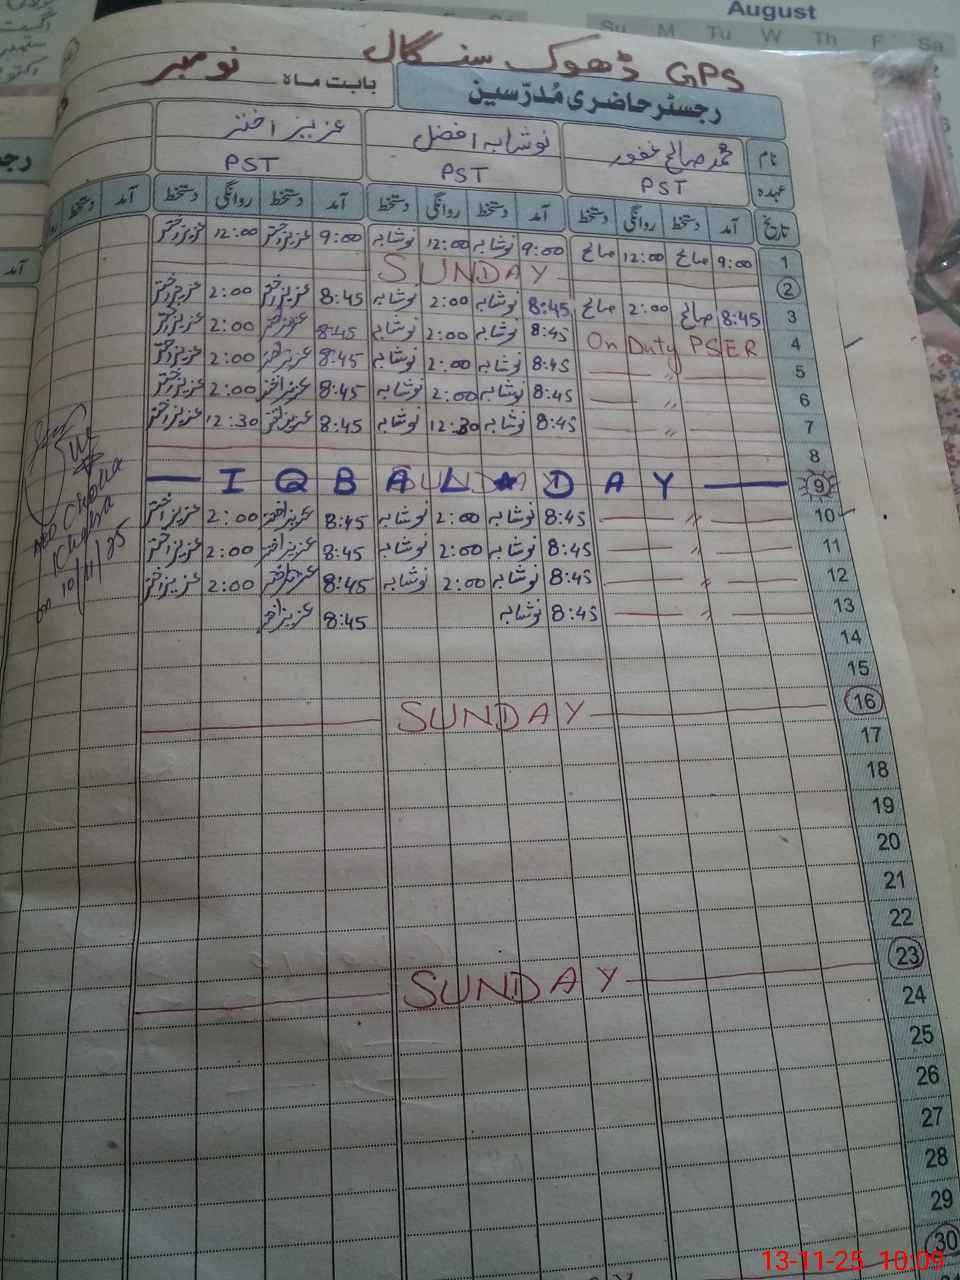 August
Su M Tu W Th F Sa
GPS ڈھوک سنگال
بابت ماہ نومبر
رجسٹر حاضری مُدرّسین
نام محمد صالح غفور نوشابہ افضل عزیز اختر
عہدہ PST PST PST
تاریخ آمد دستخط روانگی دستخط آمد دستخط روانگی دستخط آمد دستخط روانگی دستخط آمد دستخط
1 9:00 صالح 12:00 صالح 9:00 نوشابہ 12:00 نوشابہ 9:00 عزیز اختر 12:00 عزیز اختر
2 SUNDAY
3 8:45 صالح 2:00 صالح 8:45 نوشابہ 2:00 نوشابہ 8:45 عزیز اختر 2:00 عزیز اختر
4 On Duty PSER 8:45 نوشابہ 2:00 نوشابہ 8:45 عزیز اختر 2:00 عزیز اختر
5 〃 8:45 نوشابہ 2:00 نوشابہ 8:45 عزیز اختر 2:00 عزیز اختر
6 〃 8:45 نوشابہ 2:00 نوشابہ 8:45 عزیز اختر 2:00 عزیز اختر
7 〃 8:45 نوشابہ 12:30 نوشابہ 8:45 عزیز اختر 12:30 عزیز اختر
8
9 IQBAL DAY SUNDAY
10 〃 8:45 نوشابہ 2:00 نوشابہ 8:45 عزیز اختر 2:00 عزیز اختر
11 〃 8:45 نوشابہ 2:00 نوشابہ 8:45 عزیز اختر 2:00 عزیز اختر
12 〃 8:45 نوشابہ 2:00 نوشابہ 8:45 عزیز اختر 2:00 عزیز اختر
13 〃 8:45 نوشابہ 8:45 عزیز اختر
14
15
16 SUNDAY
17
18
19
20
21
22
23 SUNDAY
24
25
26
27
28
29
30
on 10/11/25
13-11-25 10:09